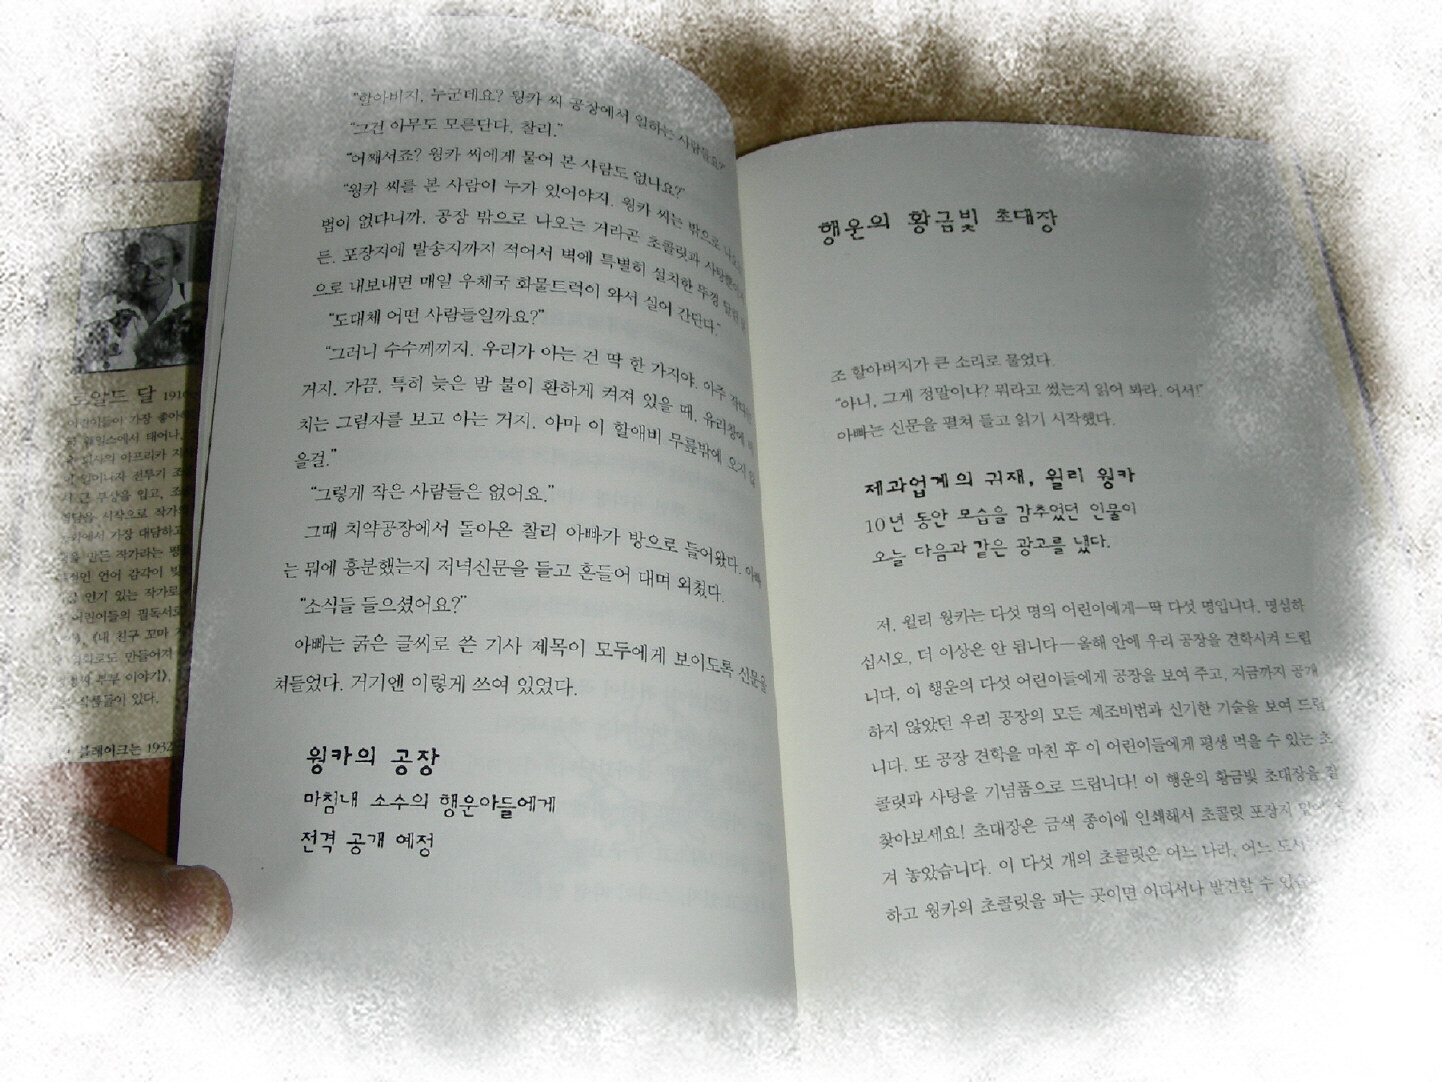 로알드 달
플레이크는 1932
"할아버지, 누군데요? 웡카 씨 공장에서 일하는 사람들요?"
"그건 아무도 모른단다, 찰리."
"어째서죠? 웡카 씨에게 물어 본 사람도 없나요?"
"웡카 씨를 본 사람이 누가 있어야지. 웡카 씨는 밖으로
법이 없다니까. 공장 밖으로 나오는 거라곤 초콜릿과
든. 포장지에 발송지까지 적어서 벽에 특별히 설치한 뚜껑
으로 내보내면 매일 우체국 화물트럭이 와서 실어 간단다."
"도대체 어떤 사람들일까요?"
"그러니 수수께끼지. 우리가 아는 건 딱 한 가지야. 아주
거지. 가끔, 특히 늦은 밤 불이 환하게 켜져 있을 때, 유리창에
치는 그림자를 보고 아는 거지. 아마 이 할애비 무릎밖에
을걸."
"그렇게 작은 사람들은 없어요."
그때 치약공장에서 돌아온 찰리 아빠가 방으로 들어왔다. 아빠
는 뭐에 흥분했는지 저녁신문을 들고 흔들어 대며 외쳤다.
"소식들 들으셨어요?"
아빠는 굵은 글씨로 쓴 기사 제목이 모두에게 보이도록 신문을
쳐들었다. 거기엔 이렇게 쓰여 있었다.
웡카의 공장
마침내 소수의 행운아들에게
전격 공개 예정
행운의 황금빛 초대장
조 할아버지가 큰 소리로 물었다.
"아니, 그게 정말이냐? 뭐라고 썼는지 읽어 봐라. 어서!"
아빠는 신문을 펼쳐 들고 읽기 시작했다.
제과업계의 귀재, 윌리 웡카
10년 동안 모습을 감추었던 인물이
오늘 다음과 같은 광고를 냈다.
저, 윌리 웡카는 다섯 명의 어린이에게—딱 다섯 명입니다, 명심하
십시오, 더 이상은 안 됩니다—올해 안에 우리 공장을 견학시켜 드립
니다. 이 행운의 다섯 어린이들에게 공장을 보여 주고, 지금까지 공개
하지 않았던 우리 공장의 모든 제조비법과 신기한 기술을 보여 드립
니다. 또 공장 견학을 마친 후 이 어린이들에게 평생 먹을 수 있는 초
콜릿과 사탕을 기념품으로 드립니다! 이 행운의 황금빛 초대장을 잘
찾아보세요! 초대장은 금색 종이에 인쇄해서 초콜릿 포장지
겨 놓았습니다. 이 다섯 개의 초콜릿은 어느 나라, 어느
하고 웡카의 초콜릿을 파는 곳이면 어디서나 발견할 수